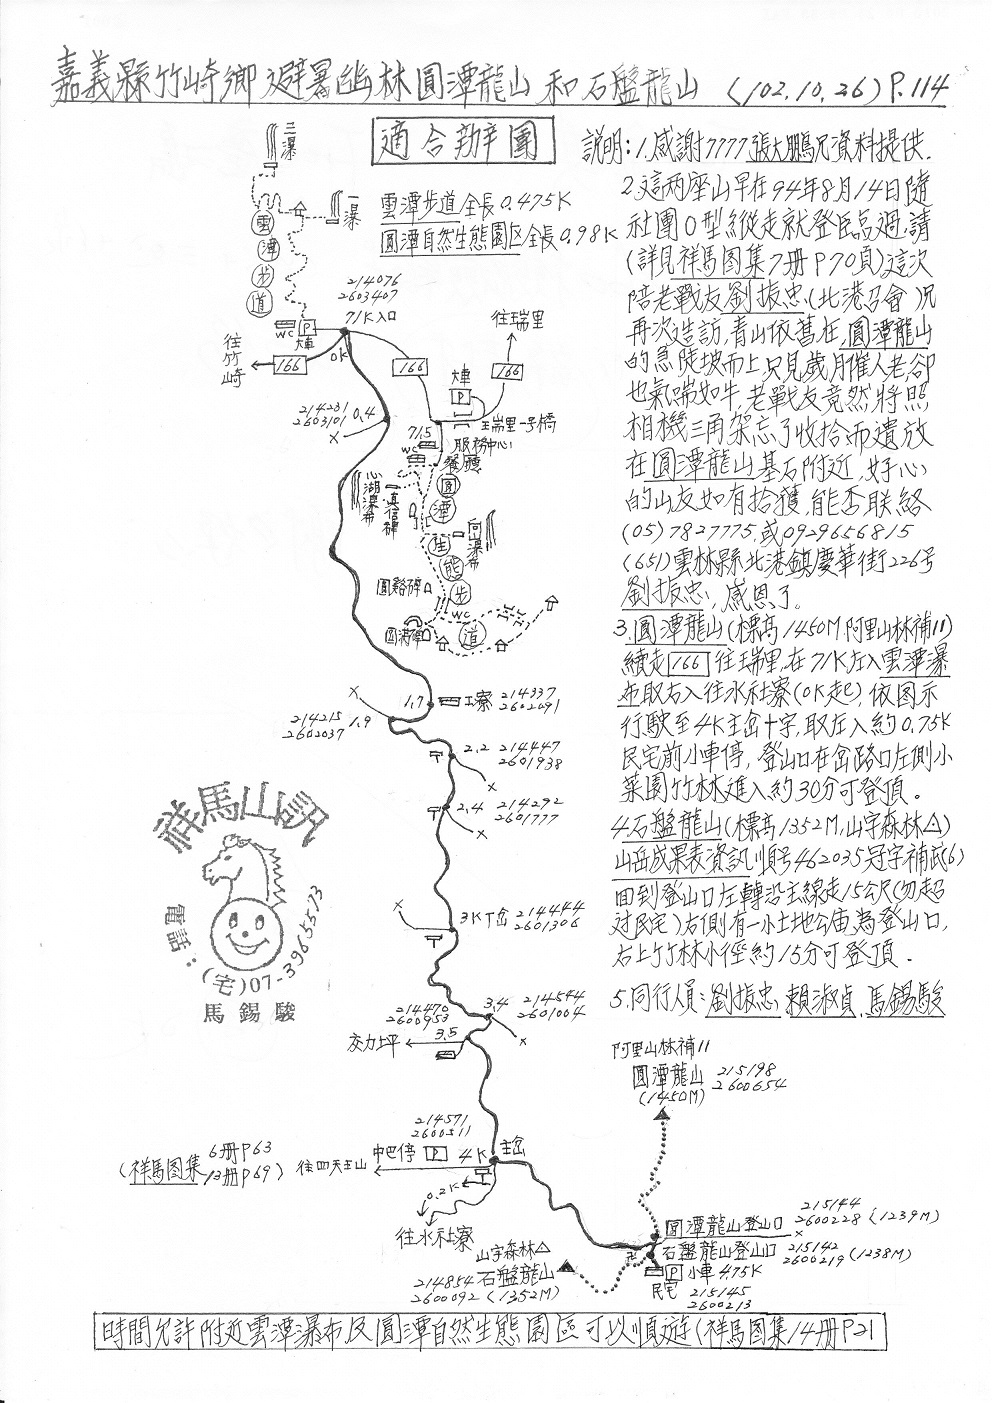 嘉義縣竹崎鄉避暑幽林圓潭龍山和石盤龍山 (102.10.26) P.114
適合辦團
雲潭步道全長0.475K
圓潭自然生態園区全長0.98K
説明:1.感謝7777張大鵬兄資料提供.
2.這兩座山早在94年8月14日隨
社團O型縱走就登臨過,請
(詳見祥馬图集7册P70頁)這次
陪老戰友劉振忠(北港召會)兄
再次造訪,青山依舊在,圓潭龍山
的急陡坡而上只見歲月催人老,卻
也氣喘如牛,老戰友竟然將照
相機三角架忘了收拾而遺放
在圓潭龍山基石附近,好心
的山友如有拾獲,能否联絡
(05)7827775.或0929656815
(651)雲林縣北港鎮慶華街226号
劉振忠,感恩了。
3.圓潭龍山(標高1450M.阿里山林補11)
續走166往瑞里,在71K左入雲潭瀑
布取右入往水社寮(0K起),依图示
行駛至4K主岔十字,取左入約0.75K
民宅前小車停,登山口在岔路口左側小
菜園竹林進入約30分可登頂。
4.石盤龍山(標高1352M,山字森林△)
山岳成果表資訊順号462035冠字補武(6)
回到登山口左轉沿主線走15公尺(勿超
过民宅)右側有一小土地公庙為登山口,
右上竹林小徑約15分可登頂.
5.同行人員:劉振忠 賴淑貞 馬錫駿
三瀑
一瀑
雲潭步道
214076
2603407
71K入口
WC
P
大車
0K
往竹崎
166
166
166
往瑞里
大車
P
瑞里一号橋
71.5
服務中心
WC
餐廳
214231
2603101
0.4
X
心湖瀑布
真信碑
圓潭生態步道
同瀑布
圓谿碑
WC
圓滿碑
X
1.7
工寮
214337
2602091
214215
2602037
1.9
2.2
214447
2601938
X
2.4
214292
2601777
X
X
3K丁岔
214444
2601306
214470
2600953
3.4
214544
2601004
3.5
X
交力坪
祥馬山訊
電話:(宅)07-3965573
馬錫駿
(祥馬图集 6册P63
13册P69)
往四天王山
中巴停
P
214571
2600311
4K
主岔
0.2K
往水社寮
阿里山林補11
圓潭龍山
(1450M)
215198
2600654
圓潭龍山登山口
215144
2600228
(1239M)
X
石盤龍山登山口
215142
2600219
(1238M)
P
小車 4.75K
民宅
215145
2600213
山字森林△
石盤龍山
214854
2600092
(1352M)
時間允許附近雲潭瀑布及圓潭自然生態園區可以順遊(祥馬图集14册P21